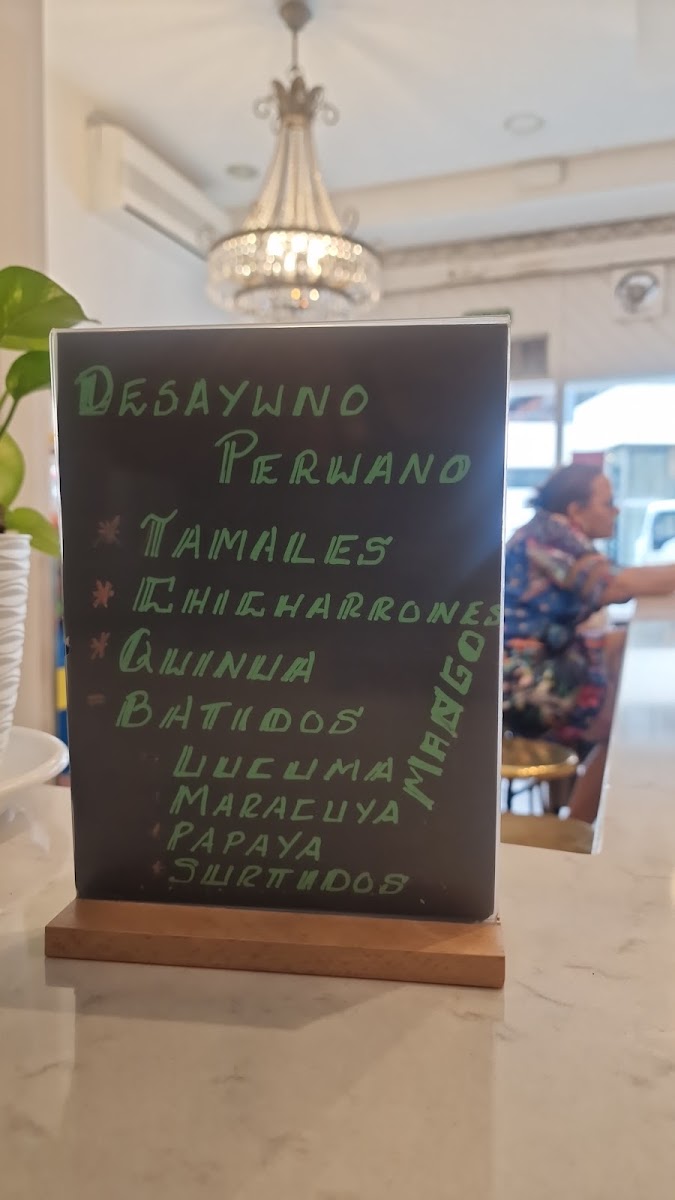 DESAYUNO
PERUANO
* TAMALES
* CHICHARRONES
* QUINUA
- BATIDOS
LUCUMA
MARACUYA
PAPAYA
* SURTIDOS
MANGO